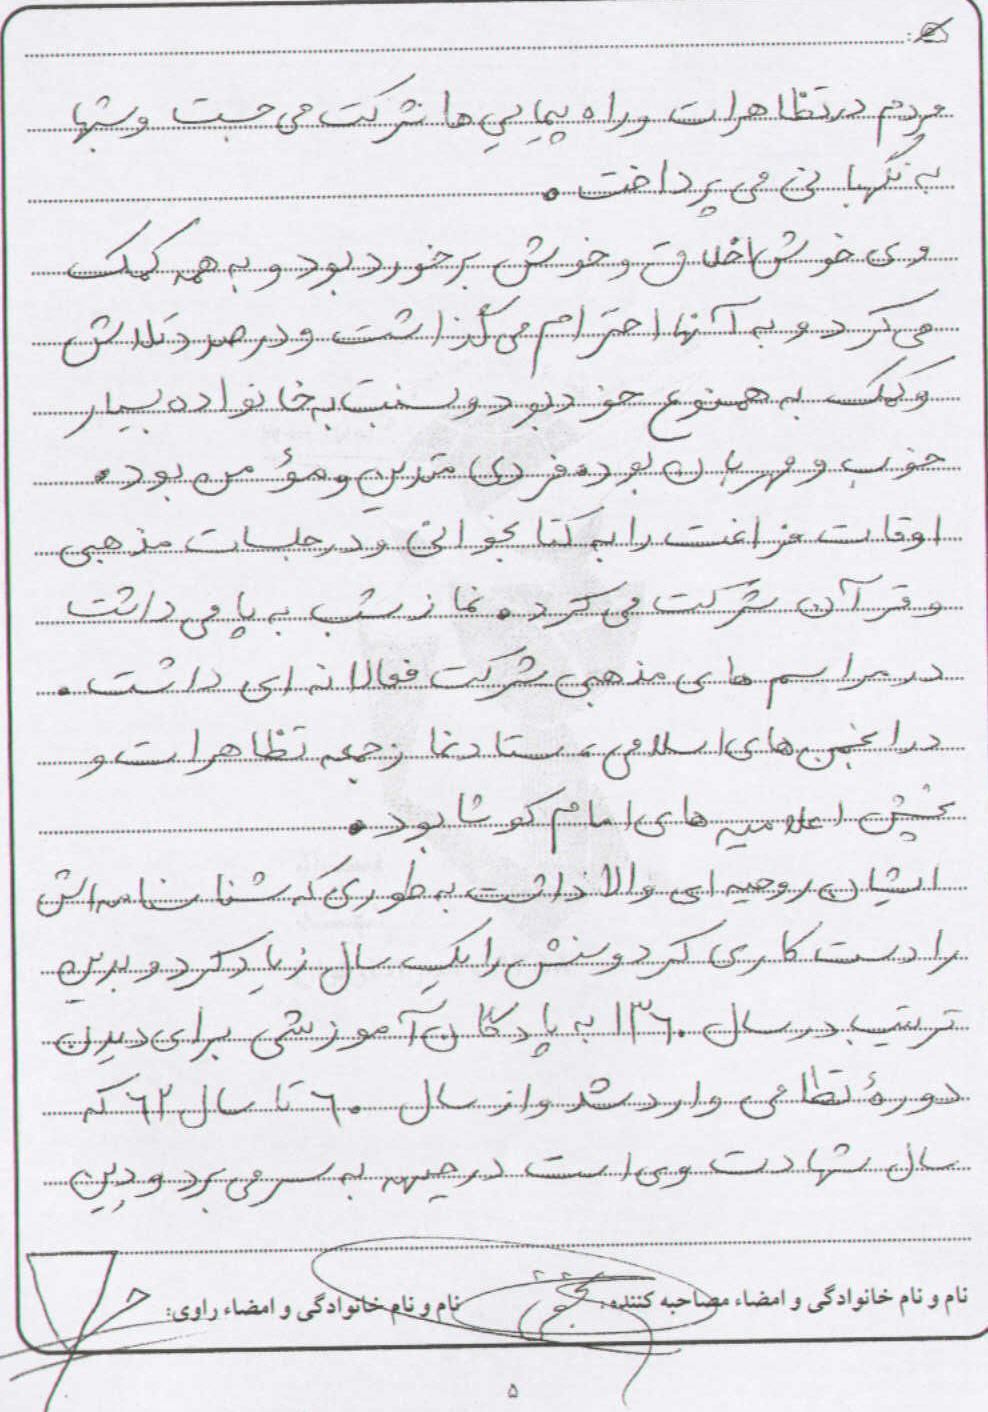 مردم در تظاهرات و راه پیمایی ها شرکت می جست و شبها
به نگهبانی می پرداخت .
وی خوش اخلاق و خوش برخورد بود و به همه کمک
می کرد و به آنها احترام می گذاشت و درصدد تلاش
و کمک به همنوع خود بود و نسبت به خانواده بسیار
خوب و مهربان بود. فردی متدین و مؤمن بود.
اوقات فراغت را به کتابخوانی و در جلسات مذهبی
و قرآن شرکت می کرد. نماز شب به پا می داشت
در مراسم های مذهبی شرکت فعالانه ای داشت .
در انجمن های اسلامی ، ستاد نماز جمعه تظاهرات و
پخش اعلامیه های امام کوشا بود .
ایشان روحیه ای والا داشت به طوری که شناسنامه اش
را دست کاری کرد و سنش را یک سال زیاد کرد و بدین
ترتیب در سال ۱۳۶۰ به پادگان آموزشی برای دیدن
دورهٔ نظامی وارد شد و از سال ۶۰ تا سال ۶۲ که
سال شهادت وی است در جبهه به سر می برد و دین
نام و نام خانوادگی و امضاء مصاحبه کننده: نام و نام خانوادگی و امضاء راوی:
۵